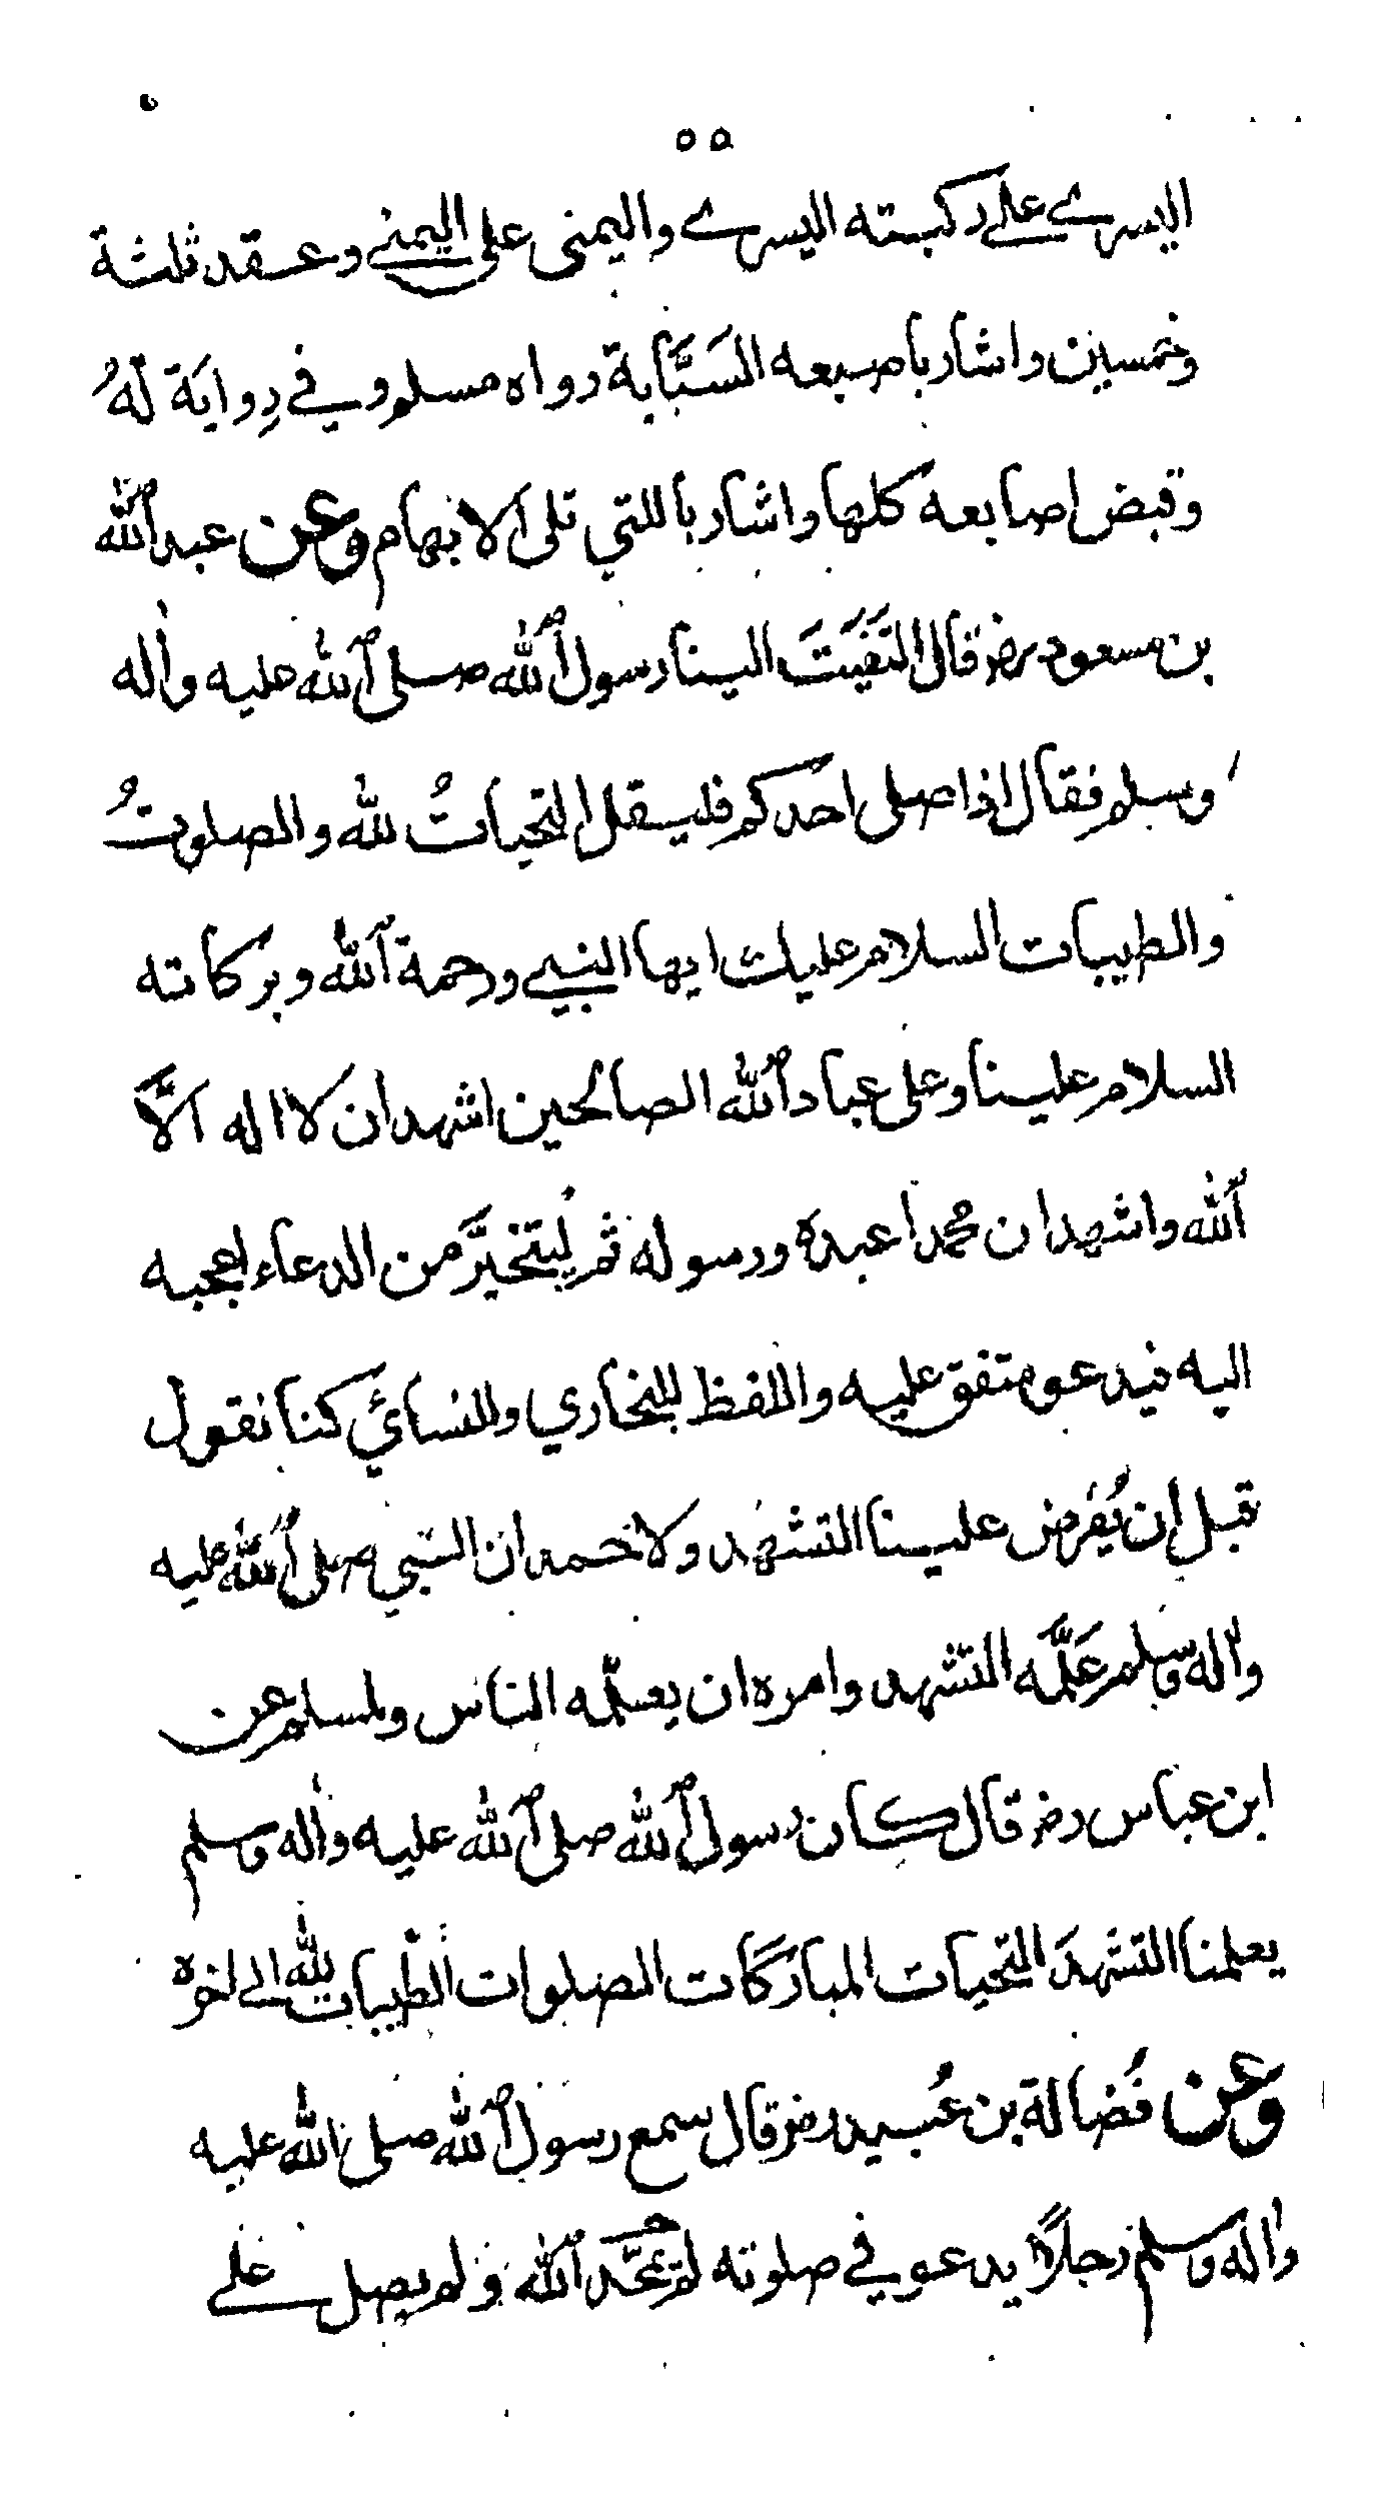 ٥٥
اليسرى على ركبته اليسرى واليمنى على اليمنى وعقد ثلثة
وخمسين واشار باصبعه السَّبَّابة رواه مسلم وفي رِوايَة لَهُ
وقبض اصابعه كلها واشار باللتي تلى الابهام وعن عبد الله
بن مسعود رض قال التَفَتَ الينا رسول الله صلى الله عليه واله
وسلم فقال اذا صلى احدكم فليقل التحياتُ لله والصلوتُ
والطيبات السلام عليك ايها النبي ورحمة الله وبركاته
السلام علينا وعلى عباد الله الصالحين اشهد ان لا اله الَّا
الله واشهد ان محمدا عبده ورسوله ثم ليُتخيَّر من الدعاء اعجبه
اليه فيدعو متفق عليه واللفظ للبخاري وللنسائي كنا نقول
قبل ان يُفرض علينا التشهد ولاحمد ان النبي صلى الله عليه
واله وسلم عَلَّمَه التشهد وامره ان يعلّمه الناس ولمسلم عن
ابن عباس رض قال كان رسول الله صلى الله عليه واله وسلم
يعلمنا التشهدَ التحيات المباركات الصلوات الطيبات لله الى اخره
وعن فَضالة بن عُبيد رض قال سمع رسول الله صلى الله عليه
واله وسلم رجلاً يدعو في صلوته لم يحمَد الله ولم يصل على